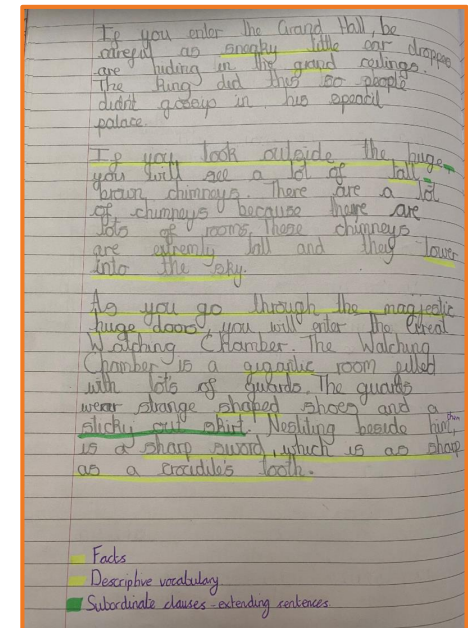 If you enter the Grand Hall, be
careful as sneaky little ear droppes
are hiding in the grand ceilings.
The King did this so people
didnt goseyp in his speacil
palace.
If you look outside the huge
you will see a lot of tall,
brown chimneys. There are a lot
of chimneys because there are
lots of rooms. These chimneys
are extremly tall and they tower
into the sky.
As you go through the magjestic
huge doors, you will enter the Great
Watching Chamber. The Watching
Chamber is a gigantic room filled
with lots of guards. The guards
wear strange shaped shoes and a
sticky out skirt. Nestiling beside
is a sharp sword, which is as sharp
as a crocidile's tooth.
Facts
Descriptive vocabulary
Subordinate clauses - extending sentences.